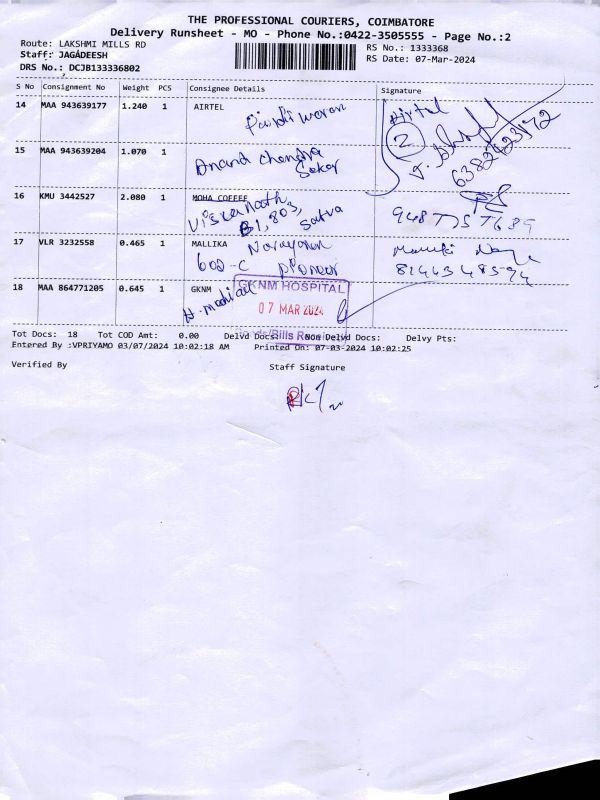 THE PROFESSIONAL COURIERS, COIMBATORE
Delivery Runsheet - MO - Phone No.:0422-3505555 - Page No.:2
Route: LAKSHMI MILLS RD
RS No.: 1333368
Staff: JAGADEESH
RS Date: 07-Mar-2024
DRS No.: DCJB133336802
S No Consignment No Weight PCS Consignee Details Signature
14 MAA 943639177 1.240 1 AIRTEL
Airtel
2
15 MAA 943639204 1.070 1
Anand Chengra
Sekar
16 KMU 3442527 2.080 1 MOHA COFFEE
B1,803,
17 VLR 3232558 0.465 1 MALLIKA Narayanan
602-C pioneer
18 MAA 864771205 0.645 1 GKNM
GKNM HOSPITAL
07 MAR 2024
Tot Docs: 18 Tot COD Amt: 0.00 Delvd Docs: Non Delvd Docs: Delvy Pts:
Entered By :VPRIYAMO 03/07/2024 10:02:18 AM Printed On: 07-03-2024 10:02:25
Verified By Staff Signature